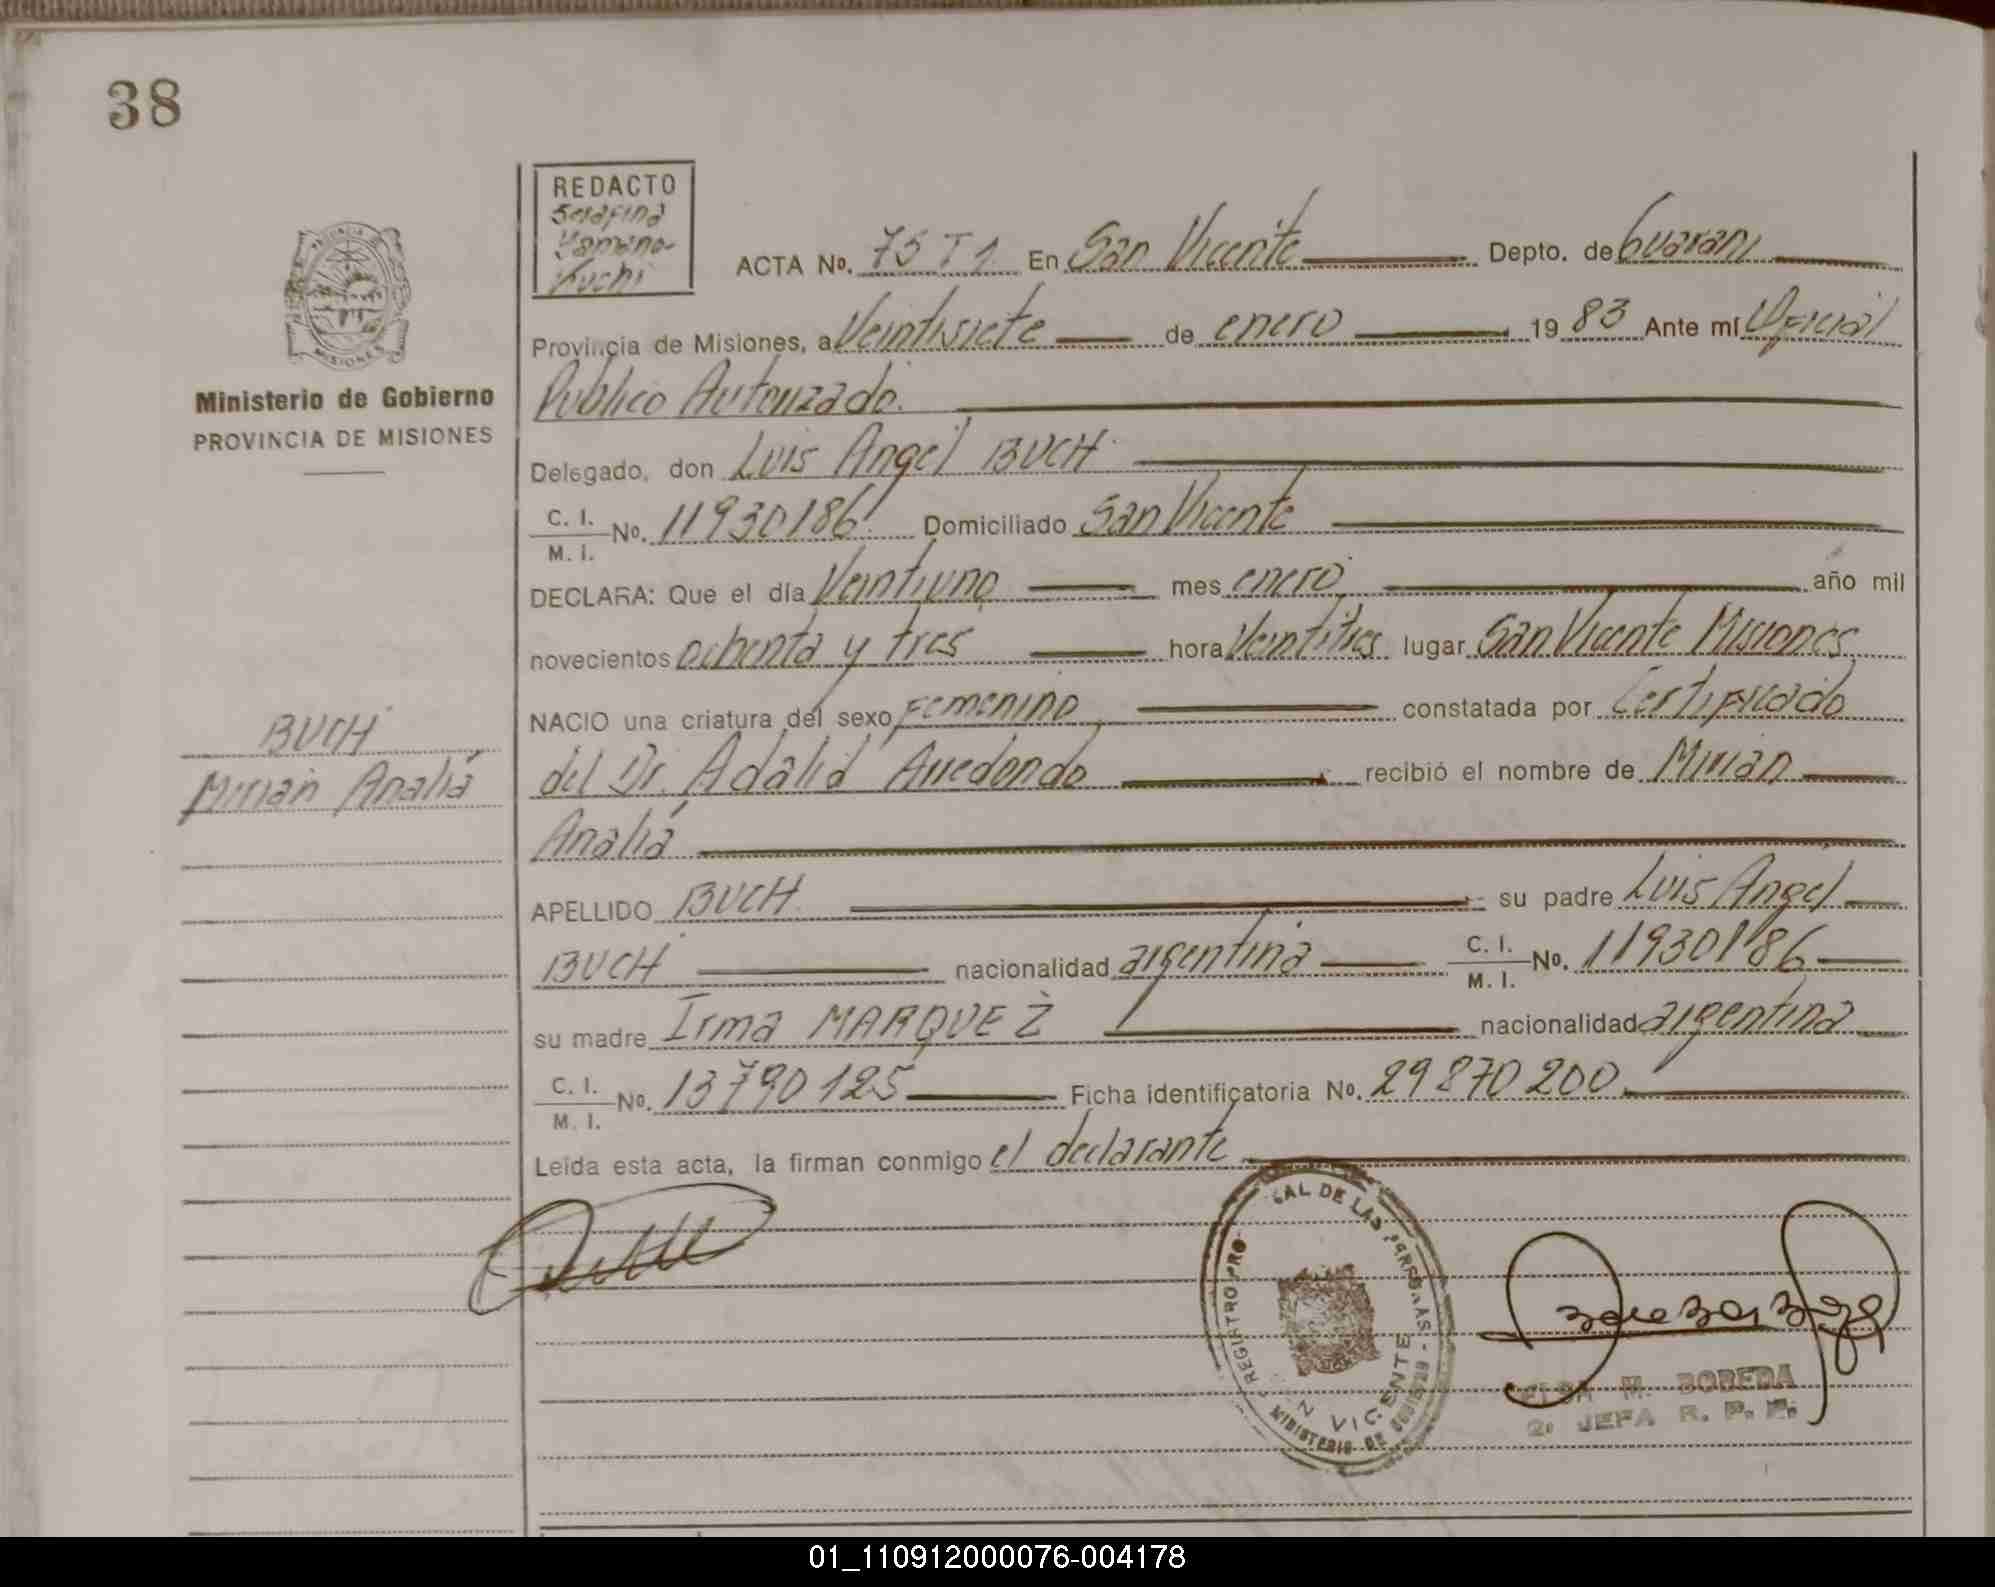 38
REDACTO
Serafina
ACTA No. 75 T1 En San Vicente Depto. de Guarani
Provincia de Misiones, a Veintisiete de enero 1983 Ante mí Oficial
Publico Autorizado.
Delegado, don Luis Angel BUCH
C. I.
M. I. No. 11930186 Domiciliado San Vicente
DECLARA: Que el día Veintiuno mes enero año mil
novecientos ochenta y tres hora Veintitres lugar San Vicente Misiones
NACIO una criatura del sexo Femenino constatada por Certificado
del Dr. Adalid Arredondo recibió el nombre de Mirian
Analía
APELLIDO BUCH su padre Luis Angel
BUCH nacionalidad argentina C. I.
M. I. No. 11930186
su madre Irma MARQUEZ nacionalidad argentina
C. I.
M. I. No. 13790125 Ficha identificatoria No. 29870200
Leída esta acta, la firman conmigo el declarante
MISIONES
Ministerio de Gobierno
PROVINCIA DE MISIONES
BUCH
Mirian Analía
DE LAS PERSONAS
VICENTE
MINISTERIO DE GOBIERNO
M. BOBEDA
JEFA R. P. P.
01_110912000076-004178